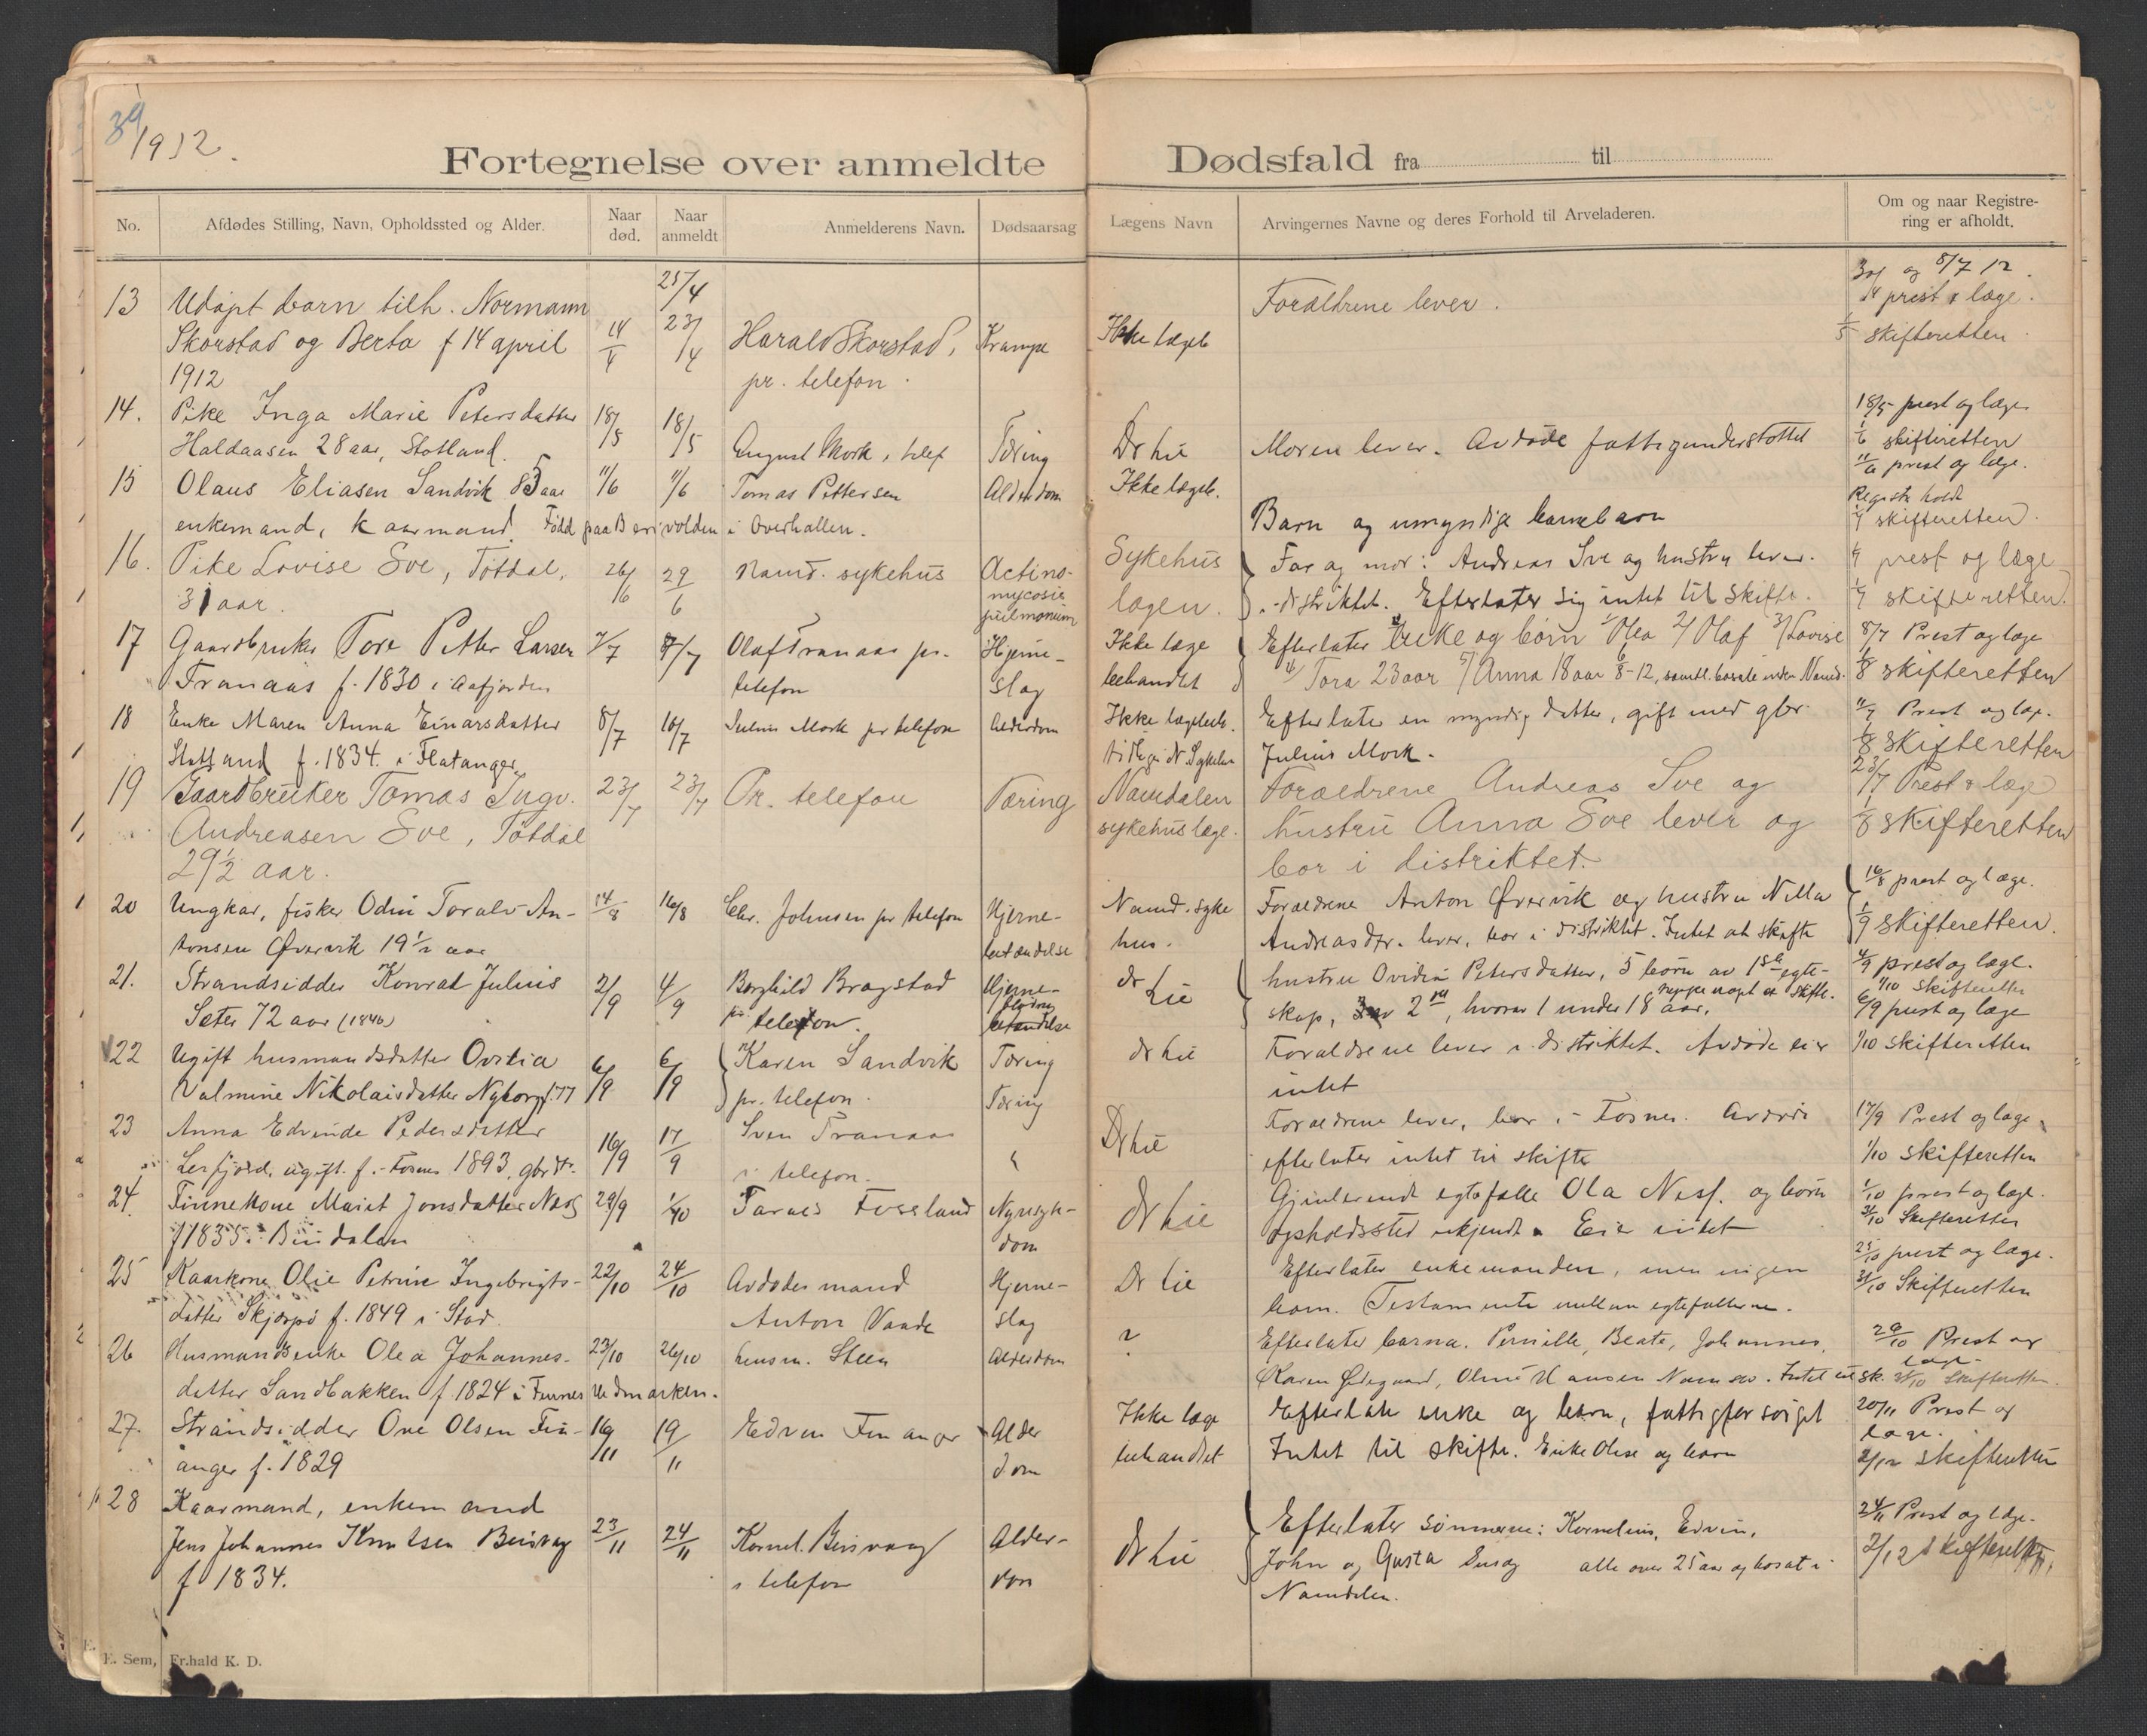 39
1912.
Fortegnelse over anmeldte Dødsfald fra til
No. Afdødes Stilling, Navn, Opholdssted og Alder. Naar død. Naar anmeldt Anmelderens Navn. Dødsaarsag Lægens Navn Arvingernes Navne og deres Forhold til Arveladeren. Om og naar Registrering er afholdt.
25/4 8/7 12.
13 Udøpt barn tilh. Normann Forældrene lever. prest & læge.
Skorstad og Berta f 14 april 14/4 23/4 Harald Skorstad, Krampe Ikke lægeb 1/5 skifteretten
1912 pr. telefon.
14. Pike Inga Marie Petersdatter 18/5 18/5 18/5 prest og læge
Haldaasen 28 aar, Statland. August Mork, telef Tæring Dr Lie Moren lever. Avdøde fattigunderstøttet 1/6 skifteretten
15 Olaus Eliasen Sandvik 85 aar 11/6 11/6 Tomas Pettersen Alderdom Ikke lægeb. 11/6 prest og læge.
Registr holdt
enkemand, kaarmand. Født paa Berivolden i Overhallen. Barn og umyndige barnebarn 1/7 skifteretten.
16. Pike Lovise Sve, Tøtdal, 26/6 29/6 Namd. sykehus Actino- Sykehus Far og mor: Andreas Sve og hustru lever. 1/7 prest og læge
31 aar. mycosis pulmonium lægen. i distriktet. Efterlater sig intet til skifte. 1/7 skifteretten.
17 Gaardbruker Tore Petter Larsen 7/7 8/7 Olaf Tranaas pr. Hjerne- Ikke læge Efterlater enke og børn 1/ Olea 2/ Olaf 3/ Lovise 8/7 Prest og læge
Tranaas f. 1830 i Aafjorden telefon slag behandlet 4/ Tora 23 aar 5/ Anna 18 aar 8-12, samtl. bosate inden Namd. 1/8 skifteretten
18 Enke Maren Anna Einarsdatter 8/7 10/7 Julius Mork pr telefon Alderdom Ikke lægebeh. Efterlater en myndig datter, gift med gbr. 11/7 Prest og læge.
Statland f. 1834. i Flatanger. tidliger N. Sykehus Julius Mork. 1/8 skifteretten
19 Gaardbruker Tomas Ingv. 23/7 23/7 Pr. telefon Tæring Namdalen Forældrene Andreas Sve og 23/7 Prest & læge
Andreasen Sve, Tøtdal sykehuslæge. hustru Anna Sve lever og 1/8 skifteretten
29½ aar. bor i distriktet.
20 Ungkar, fisker Odin Toralv An- 14/8 16/8 Chr. Johnsen pr telefon Hjerne- Namd. syke Forældrene Anton Øvervik og hustru Nilla 16/8 prest og læge.
tonsen Øvervik 19½ aar betændelse hus. Andreasdtr. lever, bor i distriktet. Intet at skifte 1/9 skifteretten.
21. Strandsidder Konrad Julius 2/9 4/9 Borghild Bragstad Hjerne- dr hustru Ovidia Petersdatter, 5 børn av 1ste egte- 4/9 prest og læge.
Sæter 72 aar (1840) pr telefon. betændelse Lie skap, 3 av 2det, hvorav 1 under 18 aar. neppe noget at skifte. 1/10 skifteretten
22 Ugift husmandsdatter Ovidia 6/9 6/9 Karen Sandvik Tæring dr Lie Forældrene lever i distriktet. Avdøde eier 6/9 prest og læge
Valmine Nikolaisdatter Nyborg f. 77 pr. telefon. Tæring intet 1/10 skifteretten
23 Anna Edvinde Pedersdatter 16/9 17/9 Sven Tranaas Dr Lie Forældrene lever, bor i Fosnes. Avdøde 17/9 Prest og læge
Lerfjord, ugift. f. i Fosnes 1893, gbrdtr. i telefon. " efterlater intet til skifte 1/10 skifteretten
24. Finnekone Marit Jonsdatter Næss 29/9 1/10 Tarald Fossland Nyresyk- dr Lie Gjenlevende egtefælle Ola Næss. og børn 1/10 prest og læge.
f 1835 i Bindalen dom opholdssted ukjendt. Eier intet 31/10 Skifteretten
25 Kaarkone Olie Petrine Ingebrigts- 22/10 24/10 Avdødes mand Hjerne- Dr Lie Efterlater enkemanden, men ingen 25/10 prest og læge.
datter Skjærpø f. 1849 i Stod. Anton Vaade slag barn. Testamente mellem egtefællerne. 31/10 Skifteretten
26 Husmandsenke Olea Johannes- 23/10 26/10 lensm. Steen Alderdom ? Efterlater barna. Pernille, Beate, Johannes, 29/10 Prest og læge.
datter Sandbakken f. 1824 i Finnes Hedmarken. Karen Ødegaard, Oline Hansen Namsos. Intet til sk. 31/10 Skifteretten.
27. Strandsidder Ove Olsen Fin- 16/11 19/11 Edvin Finanger Alder Ikke læge Efterlater enke og barn, fattigforsørget 20/11 Prest og læge.
anger f. 1829 dom behandlet Intet til skifte. Enke Olise og barn 2/12 skifteretten
28 Kaarmand, enkemand 24/11 Prest og læge.
Jens Johannes Knutsen Beisvag 23/11 24/11 Kornel. Beisvaag Alder- dr Lie Efterlater sønnerne: Kornelius, Edvin,
f 1834. i telefon dom John og Gusta alle over 25 aar og bosat i 2/12 skifteretten.
Namdalen.
E. Sem, Fr.hald K. D.